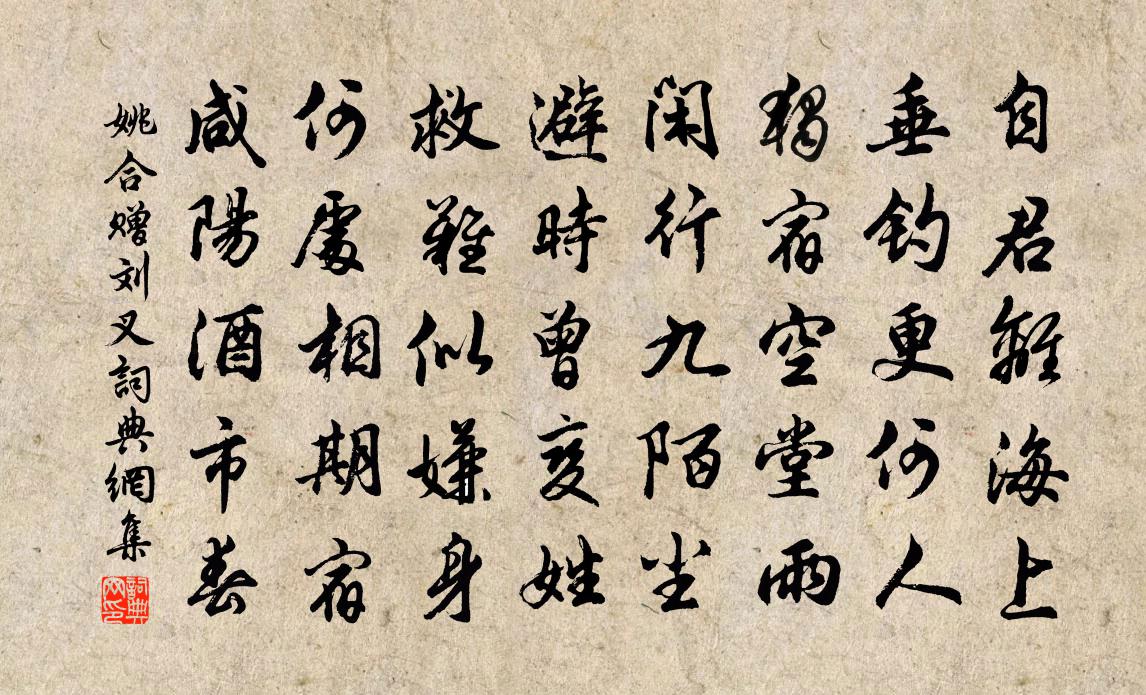 自君離海上
垂钓更何人
獨宿空堂雨
闲行九陌尘
避時曾变姓
救難似嫌身
何處相期宿
咸陽酒市春
姚合赠刘叉詞典網集
詞典
网印